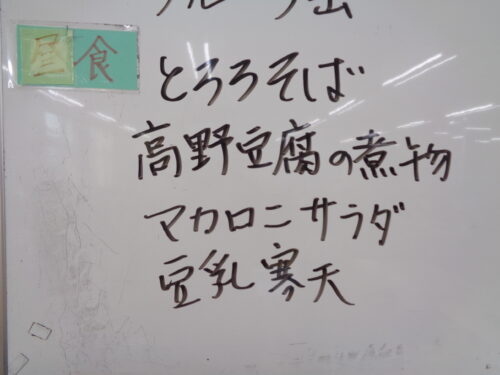 昼食
とろろそば
高野豆腐の煮物
マカロニサラダ
豆乳寒天